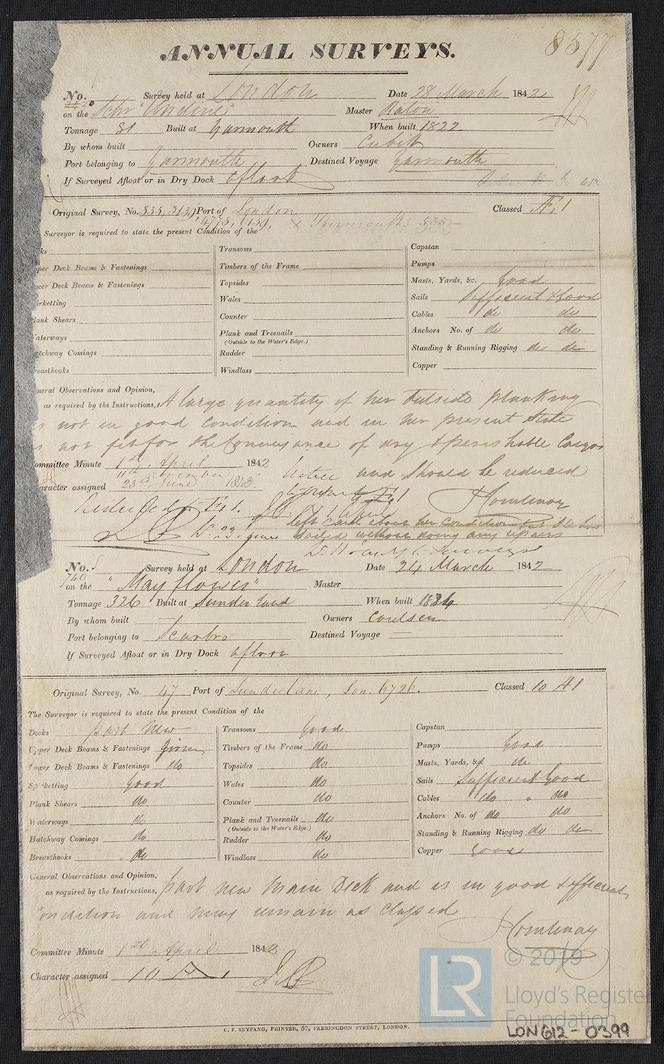 8577
ANNUAL SURVEYS.
No. Survey held at London Date 28 March 1842
on the Schr "Undine" Master Eaton
Tonnage 81 Built at Yarmouth When built 1822
By whom built Owners Cubit
Port belonging to Yarmouth Destined Voyage Yarmouth
If Surveyed Afloat or in Dry Dock afloat
Original Survey, No. 535, 3139 Port of London Classed Æ1
Surveyor is required to state the present Condition of the
ks Transoms Capstan
per Deck Beams & Fastenings Timbers of the Frame Pumps
wer Deck Beams & Fastenings Topsides Masts, Yards, &c. Good
rketting Wales Sails Sufficient & Good
lank Shears Counter Cables do do
aterways Plank and Treenails Anchors No. of do do
(Outside to the Water's Edge.)
atchway Comings Rudder Standing & Running Rigging do do
reasthooks Windlass Copper
neral Observations and Opinion,
as required by the Instructions, A large quantity of her Outside planking
is not in good condition and in her present State
is not fit for the Conveyance of dry & perishable Cargos
ommittee Minute 1st April 1842 and should be reduced
11th November
haracter assigned 23rd June 1843
left Card about her Condition but She has
Sailed without doing any repairs
No. Survey held at London Date 24 March 1842
740
on the "Mayflower" Master
Tonnage 326 Built at Sunderland When built 1834
By whom built Owners Coulson
Port belonging to Scarbro Destined Voyage
If Surveyed Afloat or in Dry Dock afloat
Original Survey, No. 47 Port of Sunderland, Lon. 6726. Classed 10 A1
The Surveyor is required to state the present Condition of the
Decks part New Transoms Good Capstan
Upper Deck Beams & Fastenings Timbers of the Frame do Pumps Good
Lower Deck Beams & Fastenings do Topsides do Masts, Yards, &c. do
Spirketting Good Wales do Sails Sufficient Good
Plank Shears do Counter do Cables do do
Waterways do Plank and Treenails do Anchors No. of do do
(Outside to the Water's Edge.)
Hatchway Comings do Rudder do Standing & Running Rigging do do
Breasthooks do Windlass do Copper Good
General Observations and Opinion,
as required by the Instructions, part new Main Deck and is in good & efficient
Condition and may remain as Classed
Committee Minute 1st April 1842
Character assigned 10 A1
C. F. SEYFANG, PRINTER, 57, FARRINGDON STREET, LONDON.
LR
© 2019
Lloyd's Register
Foundation
LON612-0399